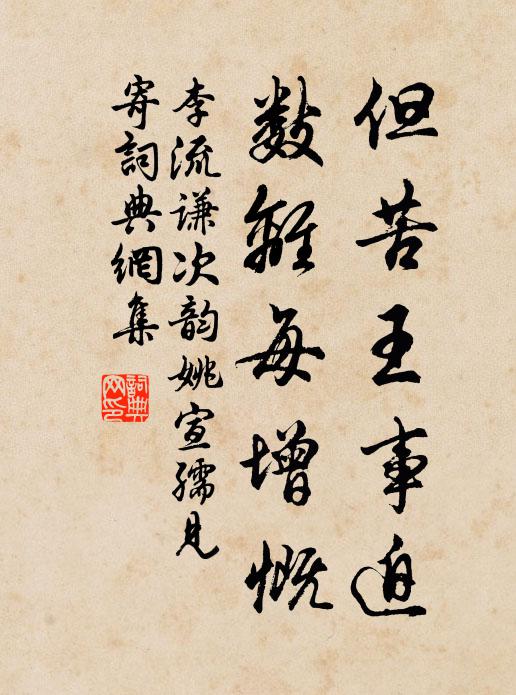 但苦王事迫
數離每增慨
李流謙次韵姚宣孺見
寄詞典網集
詞典
网印